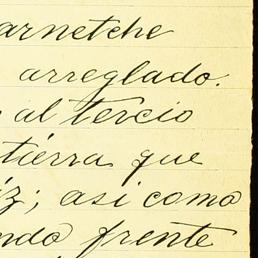 arnetche
arreglado.
al tercio
tierra que
z; asi como
ndo frente